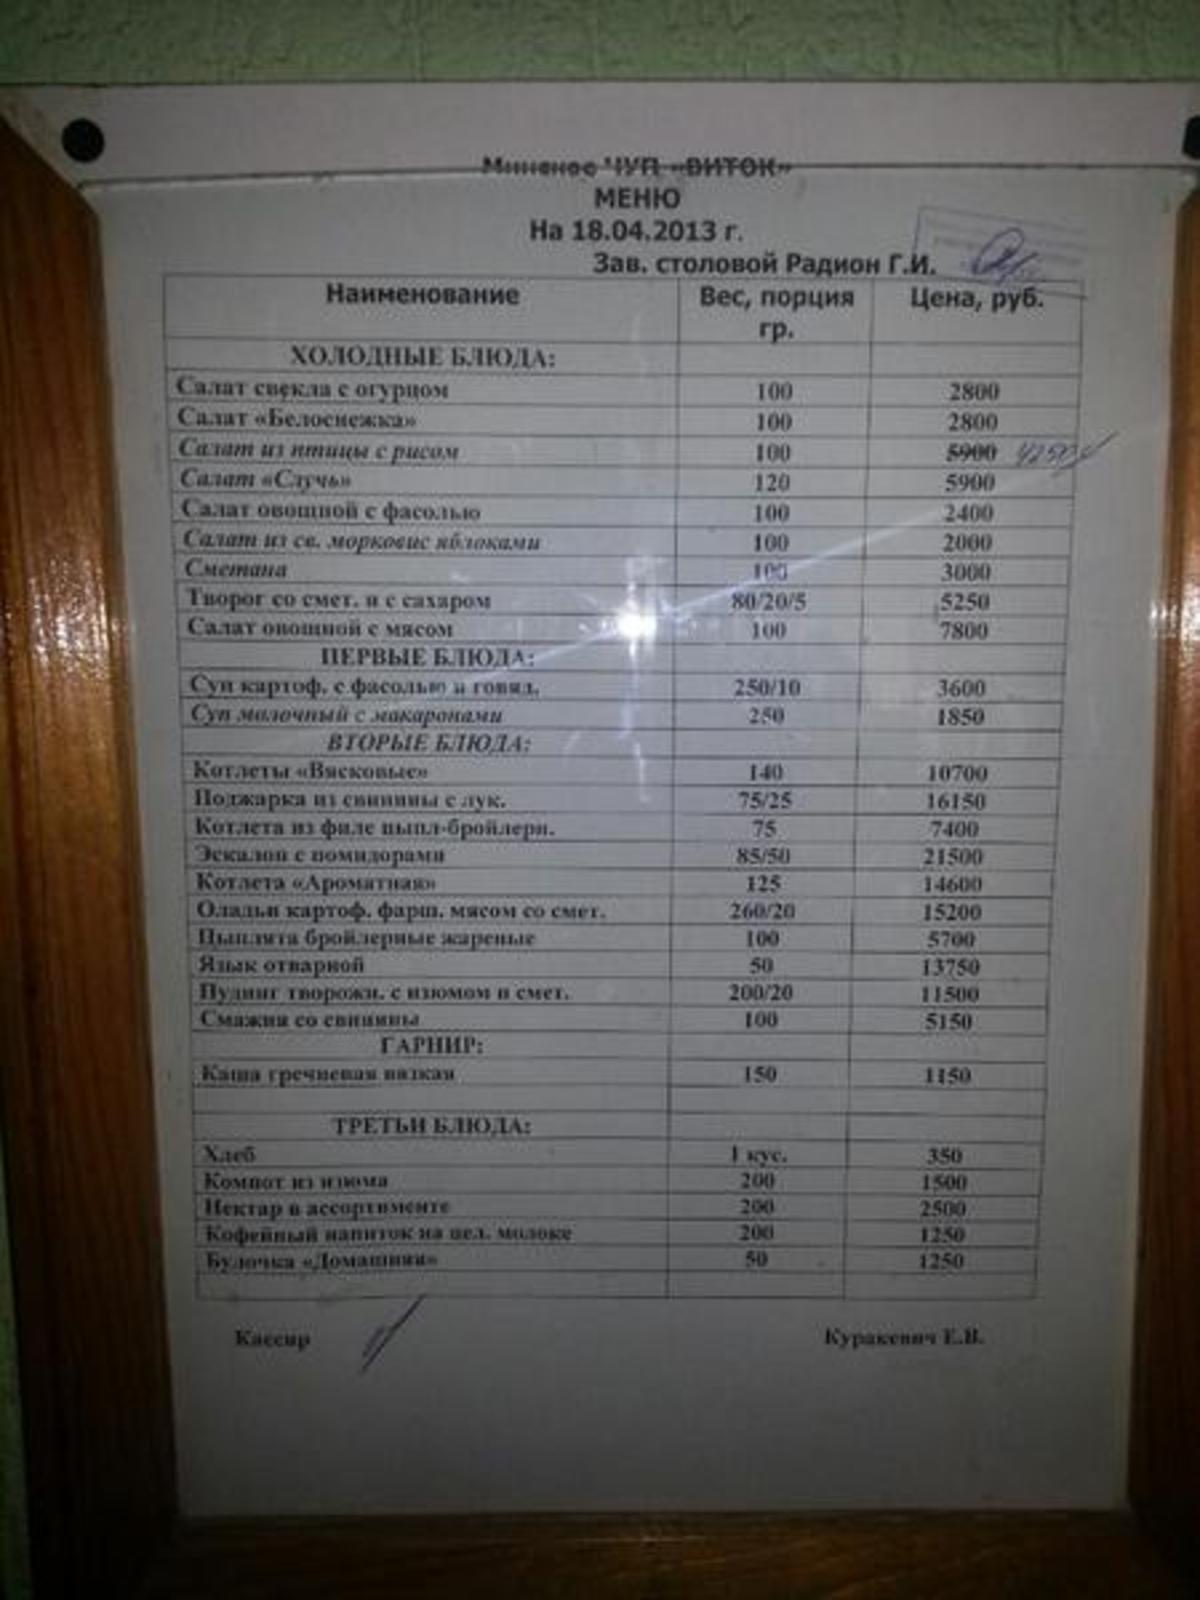 Минское ЧУП «ВИТОК»
МЕНЮ
На 18.04.2013 г.
Зав. столовой Радион Г.И.
Наименование Вес, порция гр. Цена, руб.
ХОЛОДНЫЕ БЛЮДА:
Салат свекла с огурцом 100 2800
Салат «Белоснежка» 100 2800
Салат из птицы с рисом 100 5900
Салат «Случь» 120 5900
Салат овощной с фасолью 100 2400
Салат из св. морковис яблоками 100 2000
Сметана 100 3000
Творог со смет. и с сахаром 80/20/5 5250
Салат овощной с мясом 100 7800
ПЕРВЫЕ БЛЮДА:
Суп картоф. с фасолью и говяд. 250/10 3600
Суп молочный с макаронами 250 1850
ВТОРЫЕ БЛЮДА:
Котлеты «Вясковые» 140 10700
Поджарка из свинины с лук. 75/25 16150
Котлета из филе цыпл-бройлерн. 75 7400
Эскалоп с помидорами 85/50 21500
Котлета «Ароматная» 125 14600
Оладьи картоф. фарш. мясом со смет. 260/20 15200
Цыплята бройлерные жареные 100 5700
Язык отварной 50 13750
Пудинг творожн. с изюмом и смет. 200/20 11500
Смажня со свинины 100 5150
ГАРНИР:
Каша гречневая вязкая 150 1150
ТРЕТЬИ БЛЮДА:
Хлеб 1 кус. 350
Компот из изюма 200 1500
Нектар в ассортименте 200 2500
Кофейный напиток на цел. молоке 200 1250
Булочка «Домашняя» 50 1250
Кассир Куракевич Е.В.